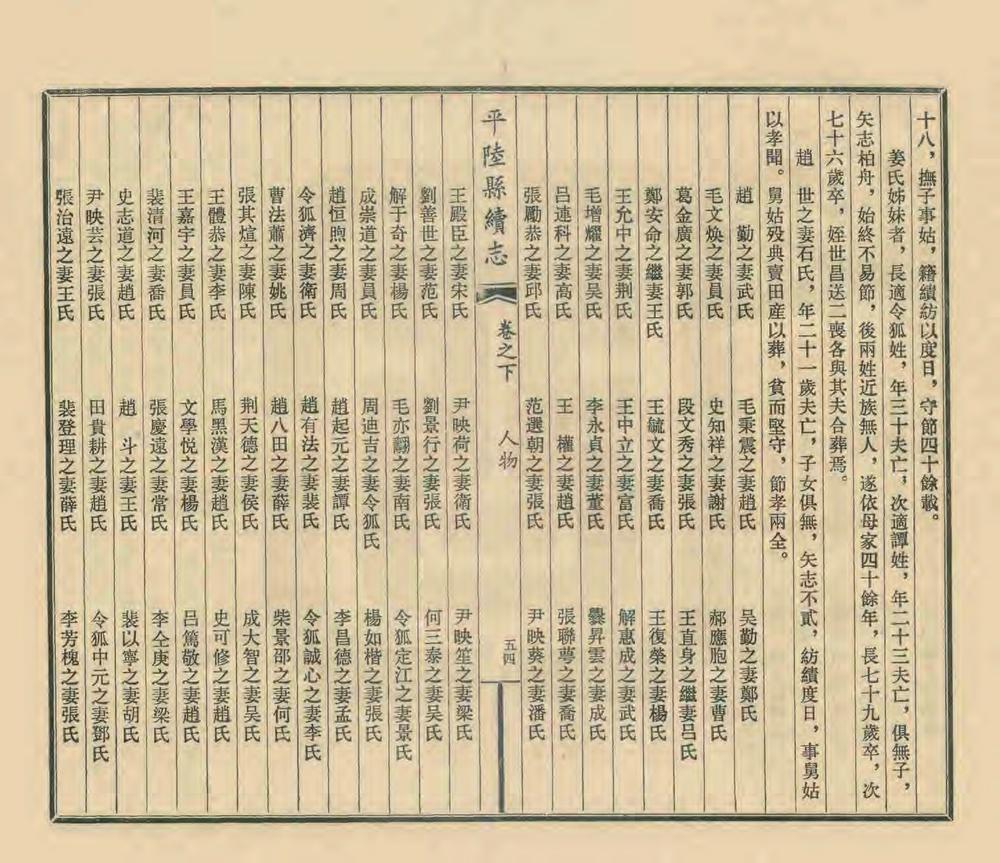 十八，撫子事姑，籍績紡以度日，守節四十餘載。
姜氏姊妹者，長適令狐姓，年三十夫亡，次適譚姓，年二十三夫亡，俱無子，
矢志柏舟，始終不易節，後兩姓近族無人，遂依母家四十餘年，長七十九歲卒，次
七十六歲卒，姪世昌送二喪各與其夫合葬焉。
趙　世之妻石氏，年二十一歲夫亡，子女俱無，矢志不貳，紡績度日，事舅姑
以孝聞。舅姑歿典賣田産以葬，貧而堅守，節孝兩全。
趙　勤之妻武氏　毛秉震之妻趙氏　吴勤之妻鄭氏
毛文煥之妻員氏　史知祥之妻謝氏　郝應胞之妻曹氏
葛金廣之妻郭氏　段文秀之妻張氏　王直身之繼妻呂氏
鄭安命之繼妻王氏　王毓文之妻喬氏　王復榮之妻楊氏
王允中之妻荆氏　王中立之妻富氏　解惠成之妻武氏
毛增耀之妻吴氏　李永貞之妻董氏　爨昇雲之妻成氏
呂連科之妻高氏　王　權之妻趙氏　張聯萼之妻喬氏
張勵恭之妻邱氏　范選朝之妻張氏　尹映葵之妻潘氏
平陸縣續志　卷之下　人物　五四
王殿臣之妻宋氏　尹映荷之妻衛氏　尹映笙之妻梁氏
劉善世之妻范氏　劉景行之妻張氏　何三泰之妻吴氏
解于奇之妻楊氏　毛亦翩之妻南氏　令狐定江之妻景氏
成崇道之妻員氏　周迪吉之妻令狐氏　楊如楷之妻張氏
趙恒煦之妻周氏　趙起元之妻譚氏　李昌德之妻孟氏
令狐濟之妻衛氏　趙有法之妻裴氏　令狐誠心之妻李氏
曹法蕭之妻姚氏　趙八田之妻薛氏　柴景邵之妻何氏
張其煊之妻陳氏　荆天德之妻侯氏　成大智之妻吴氏
王體恭之妻李氏　馬黑漢之妻趙氏　史可修之妻趙氏
王嘉宇之妻員氏　文學悅之妻楊氏　吕篤敬之妻趙氏
裴清河之妻喬氏　張慶遠之妻常氏　李全庚之妻梁氏
史志道之妻趙氏　趙　斗之妻王氏　裴以寧之妻胡氏
尹映芸之妻張氏　田貴耕之妻趙氏　令狐中元之妻鄧氏
張治遠之妻王氏　裴登理之妻薛氏　李芳槐之妻張氏